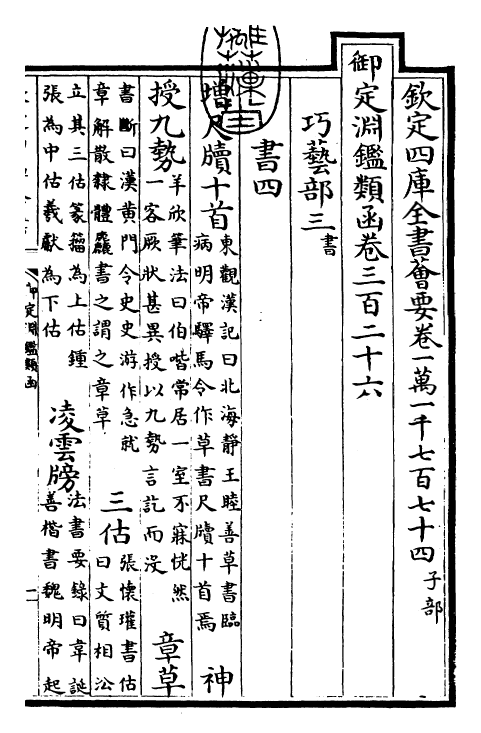 欽定四庫全書薈要卷一萬一千七百七十四子部
御定淵鑑類函卷三百二十六
巧藝部三書
書四
增尺牘十首東觀漢記曰北海靜王睦善草書臨
病明帝驛馬令作草書尺牘十首焉 神
授九勢羊欣筆法曰伯喈常居一室不寐恍然
一客厥狀甚異授以九勢言訖而没 章草
書斷曰漢黃門令史史游作急就
章解散隸體麤書之謂之章草 三估張懷瓘書估
曰文質相沿
立其三估篆籀為上估鍾
張為中估羲獻為下估 凌雲牓法書要錄曰韋誕
善楷書魏明帝起
御定淵鑑類函
一